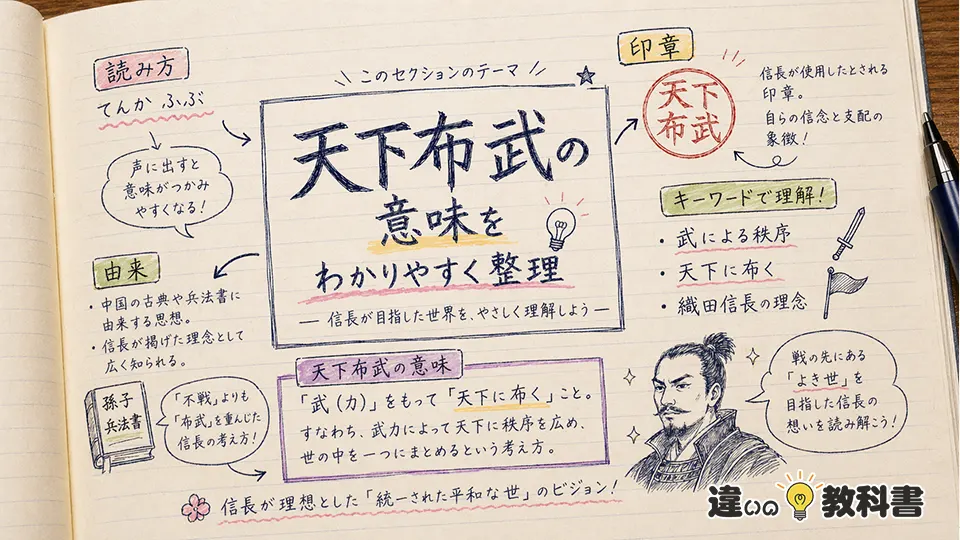 読み方
てんか ふぶ
声に出すと
意味がつかみ
やすくなる!
由来
・中国の古典や兵法書に
由来する思想。
・信長が掲げた理念として
広く知られる。
孫子
兵法書
「不戦」よりも
「布武」を重んじた
信長の考え方!
このセクションのテーマ
天下布武の
意味を
わかりやすく整理
― 信長が目指した世界を、やさしく理解しよう ―
天下布武の意味
「武(力)」をもって「天下に布く」こと。
すなわち、武力によって天下に秩序を広め、
世の中を一つにまとめるという考え方。
信長が理想とした「統一された平和な世」のビジョン!
印章
天下
布武
信長が使用したとされる
印章。
自らの信念と支配の
象徴!
キーワードで理解!
・武による秩序
・天下に布く
・織田信長の理念
戦の先にある
「よき世」を
目指した信長の
想いを読み解こう!
違いの教科書